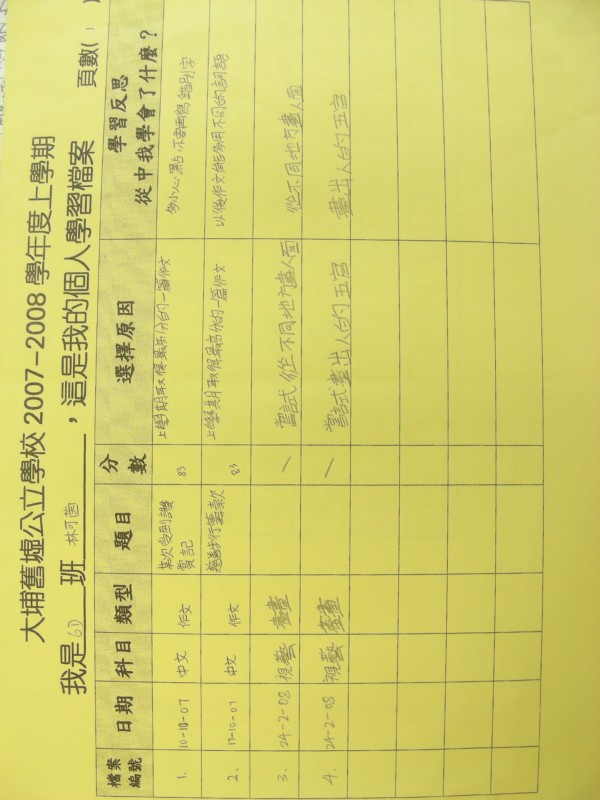 大埔舊墟公立學校 2007-2008 學年度上學期
我是 6D 班 林可茵 ，這是我的個人學習檔案 頁數( 1 )
檔案編號 日期 科目 類型 題目 分數 選擇原因 學習反思 從中我學會了什麼？
1. 10-10-07 中文 作文 某次受到讚賞記 83 上學期取得最高分的一篇作文 多小心點，不要再寫錯別字
2. 17-10-07 中文 作文 慈善步行籌款 83 上學期取得最高分的一篇作文 以後作文能夠用不同的詞語
3. 24-2-08 視藝 繪畫 / 嘗試從不同地方畫人面 從不同地方畫人面
4. 24-2-08 視藝 繪畫 / 嘗試畫出人的五官 畫出人的五官